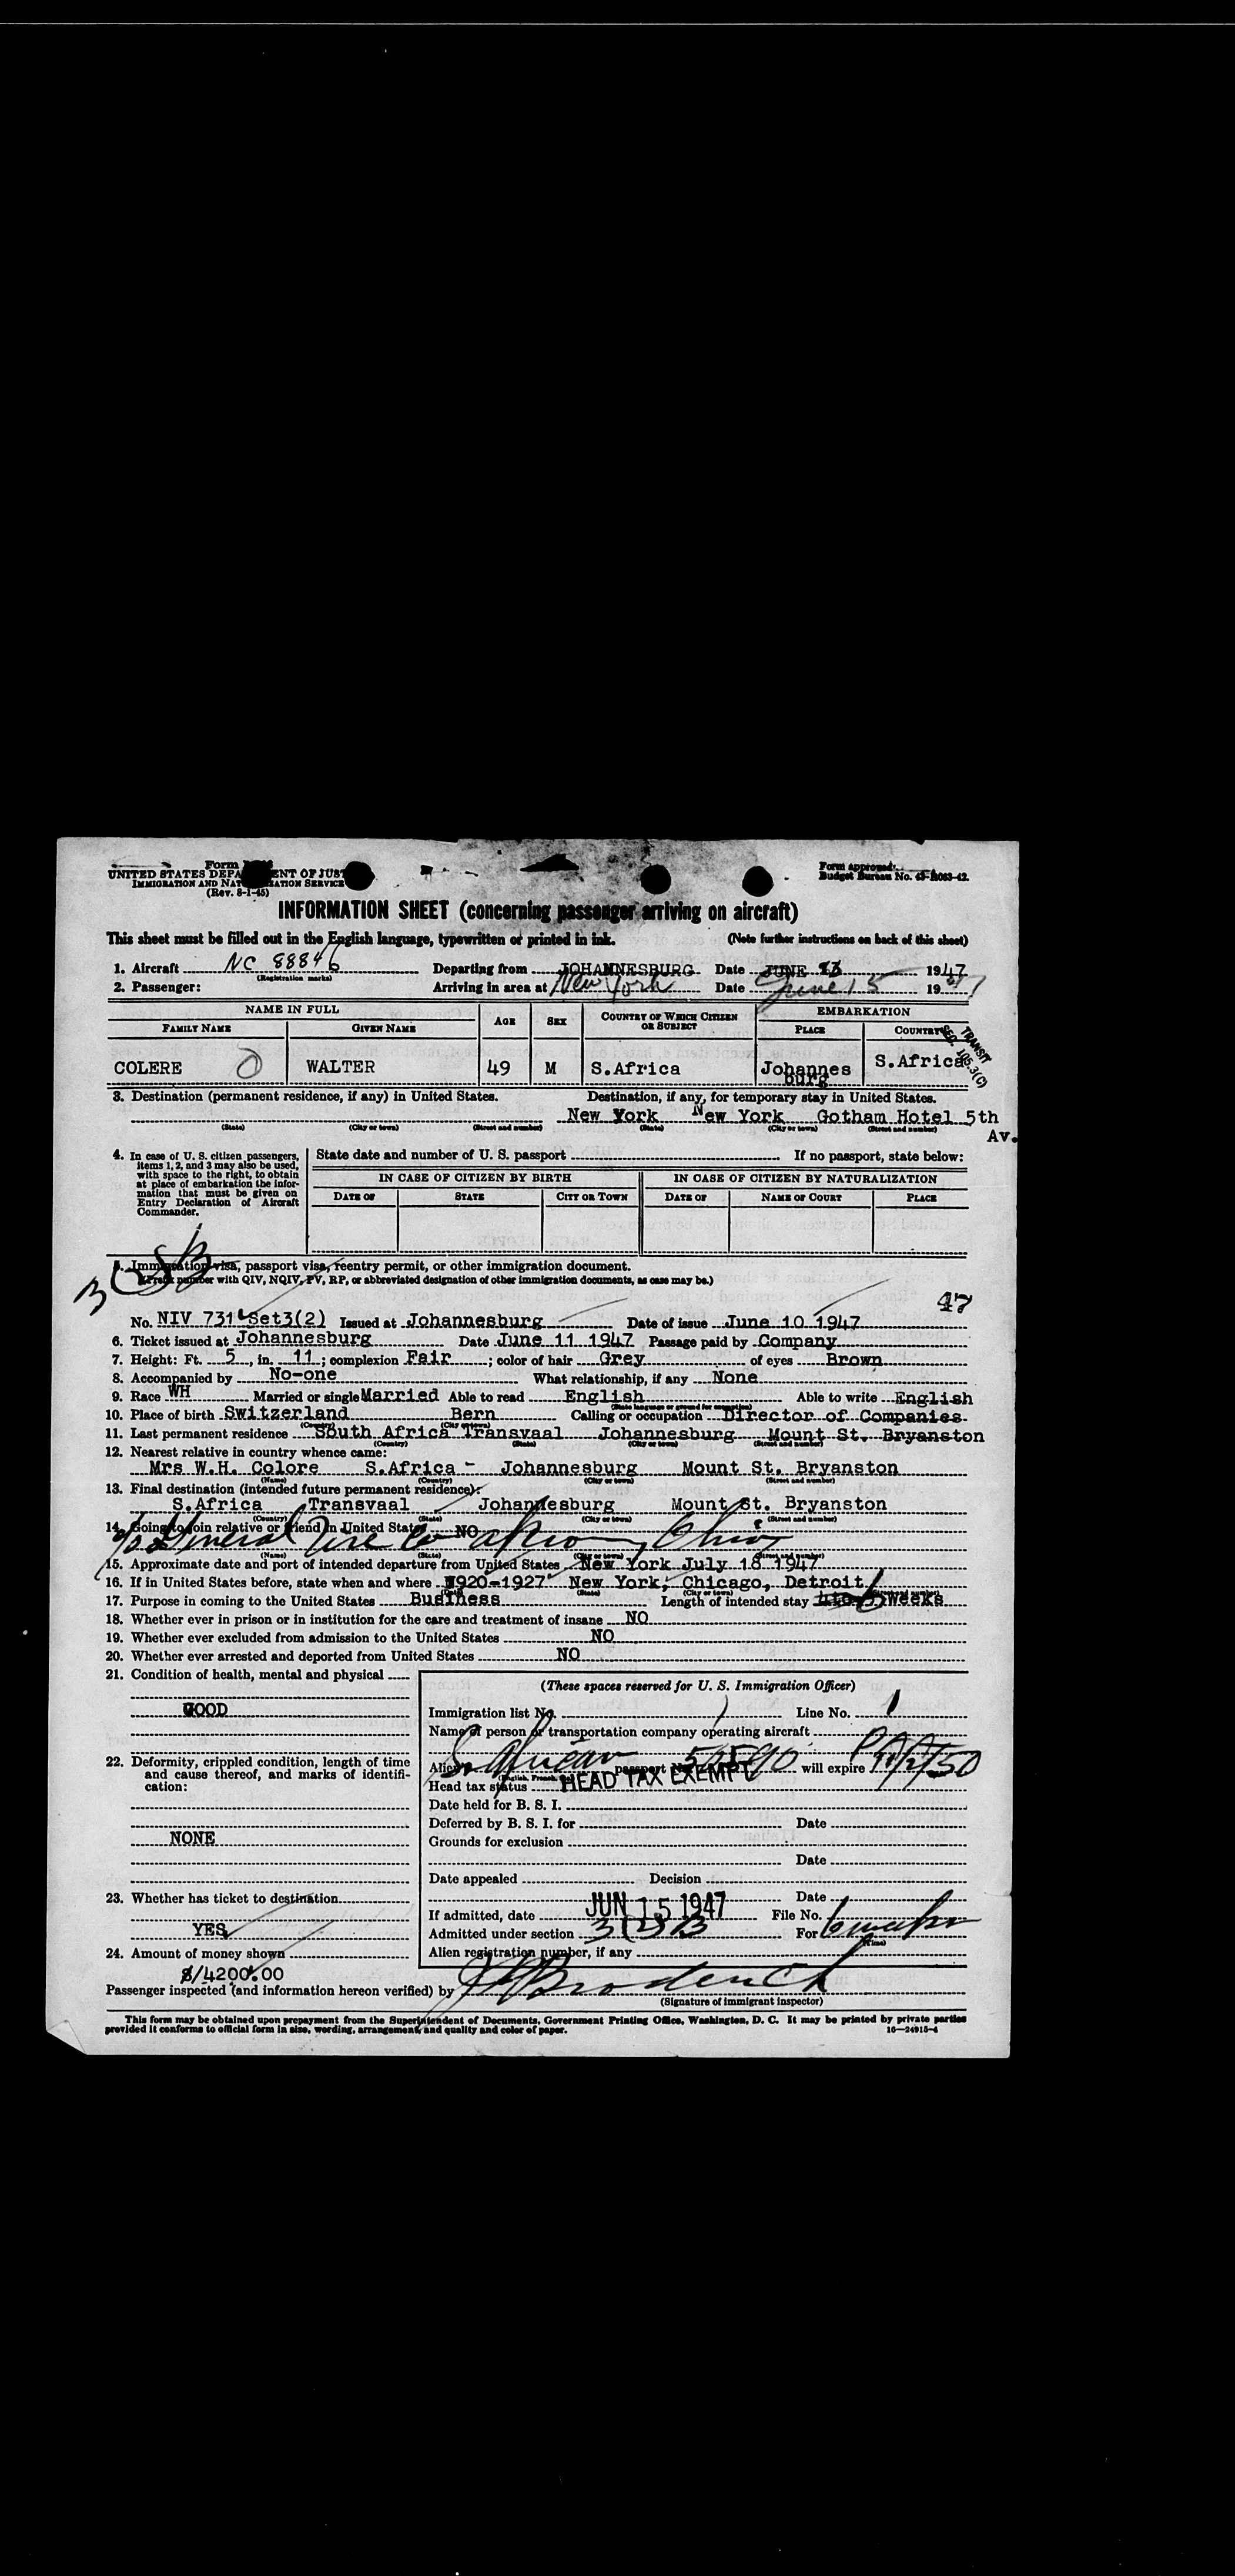 Form
UNITED STATES DEPA ENT OF JUST
IMMIGRATION AND NAT ZATION SERVICE
(Rev. 8-1-45)
Form approved.
Budget Bureau No. 43-R083-42.
INFORMATION SHEET (concerning passenger arriving on aircraft)
This sheet must be filled out in the English language, typewritten or printed in ink. (Note further instructions on back of this sheet)
1. Aircraft NC 88846 Departing from JOHANNESBURG Date JUNE 1947
(Registration marks)
2. Passenger: Arriving in area at New York Date June 15 1947
NAME IN FULL AGE SEX COUNTRY OF WHICH CITIZEN OR SUBJECT EMBARKATION
FAMILY NAME GIVEN NAME PLACE COUNTRY
TRANSIT
SEC. 105.3(C)
COLERE WALTER 49 M S.Africa Johannes burg S.Africa
3. Destination (permanent residence, if any) in United States. Destination, if any, for temporary stay in United States.
New York New York Gotham Hotel 5th Av.
(State) (City or town) (Street and number) (State) (City or town) (Street and number)
4. In case of U. S. citizen passengers, items 1, 2, and 3 may also be used, with space to the right, to obtain at place of embarkation the information that must be given on Entry Declaration of Aircraft Commander.
State date and number of U. S. passport If no passport, state below:
IN CASE OF CITIZEN BY BIRTH IN CASE OF CITIZEN BY NATURALIZATION
DATE OF STATE CITY OR TOWN DATE OF NAME OF COURT PLACE
5. Immigration visa, passport visa, reentry permit, or other immigration document.
(Prefix number with QIV, NQIV, PV, RP, or abbreviated designation of other immigration documents, as case may be.)
47
No. NIV 731 Set3(2) Issued at Johannesburg Date of issue June 10 1947
6. Ticket issued at Johannesburg Date June 11 1947 Passage paid by Company
7. Height: Ft. 5, in. 11; complexion Fair; color of hair Grey of eyes Brown
8. Accompanied by No-one What relationship, if any None
9. Race WH Married or single Married Able to read English Able to write English
(State language or ground for exemption)
10. Place of birth Switzerland Bern Calling or occupation Director of Companies
(Country) (City or town)
11. Last permanent residence South Africa Transvaal Johannesburg Mount St. Bryanston
(Country) (State) (City or town) (Street and number)
12. Nearest relative in country whence came:
Mrs W.H. Colore S.Africa - Johannesburg Mount St. Bryanston
(Name) (Country) (City or town) (Street and number)
13. Final destination (intended future permanent residence):
S.Africa Transvaal Johannesburg Mount St. Bryanston
(Country) (State) (City or town) (Street and number)
14. Going to join relative or friend in United States NO
General Tire Co Akron Ohio
(Name) (State) (City or town) (Street and number)
15. Approximate date and port of intended departure from United States New York July 18 1947
16. If in United States before, state when and where 1920-1927 New York, Chicago, Detroit
(Date) (State) (City or town) (Street and number)
17. Purpose in coming to the United States Business Length of intended stay 6 Weeks
18. Whether ever in prison or in institution for the care and treatment of insane NO
19. Whether ever excluded from admission to the United States NO
20. Whether ever arrested and deported from United States NO
21. Condition of health, mental and physical
GOOD
22. Deformity, crippled condition, length of time and cause thereof, and marks of identification:
NONE
23. Whether has ticket to destination
YES
24. Amount of money shown
$/4200.00
(These spaces reserved for U. S. Immigration Officer)
Immigration list No. 1 Line No. 1
Name of person or transportation company operating aircraft
PAA
Alien S. African passport No. will expire
Head tax status HEAD TAX EXEMPT
Date held for B. S. I.
Deferred by B. S. I. for Date
Grounds for exclusion
Date
Date appealed Decision
Date
If admitted, date JUN 15 1947 File No.
Admitted under section 3(2)B For
(Time)
Alien registration number, if any
Passenger inspected (and information hereon verified) by
(Signature of immigrant inspector)
This form may be obtained upon prepayment from the Superintendent of Documents, Government Printing Office, Washington, D. C. It may be printed by private parties
provided it conforms to official form in size, wording, arrangement, and quality and color of paper. 16-24915-4